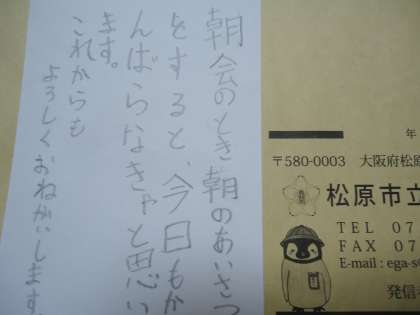 朝会のとき朝のあいさつ
をすると、今日もが
んばらなきゃと思い
ます。
これからも
よろしくおねがいします。
年
〒580-0003 大阪府松原
松原市立
TEL 07
FAX 07
E-mail : ega-s
発信